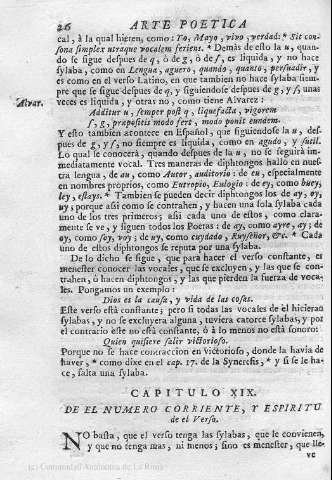 26 ARTE POETICA
cal, à la qual hieren, como: Yo, Mayo, vivo, verdad: * Sit con-
sona simplex utraque vocalem feriens. * Demás de esto la u, quan-
do se sigue despues de q, ò de g, ò de ſ, es liquida, y no hace
sylaba, como en Lengua, aguero, quando, quanto, persuadir, y
es como en el verso Latino, en que tambien no hace sylaba siem-
pre que se sigue despues de q, y siguiendose despues de g, y ſ, unas
veces es liquida, y otras no, como tiene Alvarez:
Alvar.
Additur u, semper post q, liquefacta, vigorem
ſ, g, præpositis modo fert, modo ponit eundem.
Y esto tambien acontece en Español, que siguiendose la u, des-
pues de g, y ſ, no siempre es liquida, como en agudo, y sutil.
Lo qual se conocerà, quando despues de la u, no se seguirà im-
mediatamente vocal. Tres maneras de diphtongos hallo en nues-
tra lengua, de au, como Autor, auditorio: de eu, especialmente
en nombres proprios, como Eutropio, Eulogio: de ey, como buey,
ley, essays. * Tambien se pueden decir diphtongos los de ay, oy,
uy; porque assi como se contrahen, y hacen una sola sylaba cada
uno de los tres primeros; assi cada uno de estos, como clara-
mente se ve, y siguen todos los Poetas: de ay, como ayre, ay; de
oy, como soy, voy; de uy, como cuydado, Ruyseñor, &c. * Cada
uno de estos diphtongos se reputa por una sylaba.
De lo dicho se sigue, que para hacer el verso constante, es
menester conocer las vocales, que se excluyen, y las que se con-
trahen, ò hacen diphtongos, y las que pierden la fuerza de voca-
les. Pongamos un exemplo:
Dios es la causa, y vida de las cosas.
Este verso està constante; pero si todas las vocales de èl hicieran
sylabas, y no se excluyera alguna, tuviera catorce sylabas, y por
el contrario este no està constante, ò à lo menos no està sonoro:
Quien quisiere salir victorioso.
Porque no se hace contraccion en victorioso, donde la havia de
haver, * como dixe en el cap. 17. de la Syneresis, * y si se le ha-
ce, falta una sylaba.
CAPITULO XIX.
DE EL NUMERO CORRIENTE, Y ESPIRITU
de el Verso.
NO basta, que el verso tenga las sylabas, que le convienen,
y que no tenga mas, ni menos; sino es menester, que lle-
ve
(c) Comunidad Autónoma de La Rioja